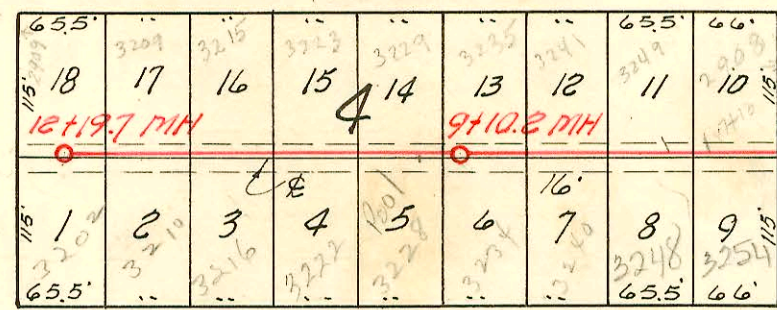 65.5' " " " " " " 65.5' 66'
2909 3209 3215 3223 3229 3235 3241 3249 2908
115' 18 17 16 15 14 13 12 11 10 115'
4
12+19.7 MH 9+10.2 MH
℄ 16'
Pool
115' 1 2 3 4 5 6 7 8 9 115'
3202 3210 3216 3222 3228 3234 3240 3248 3254
65.5' " " " " " " 65.5' 66'